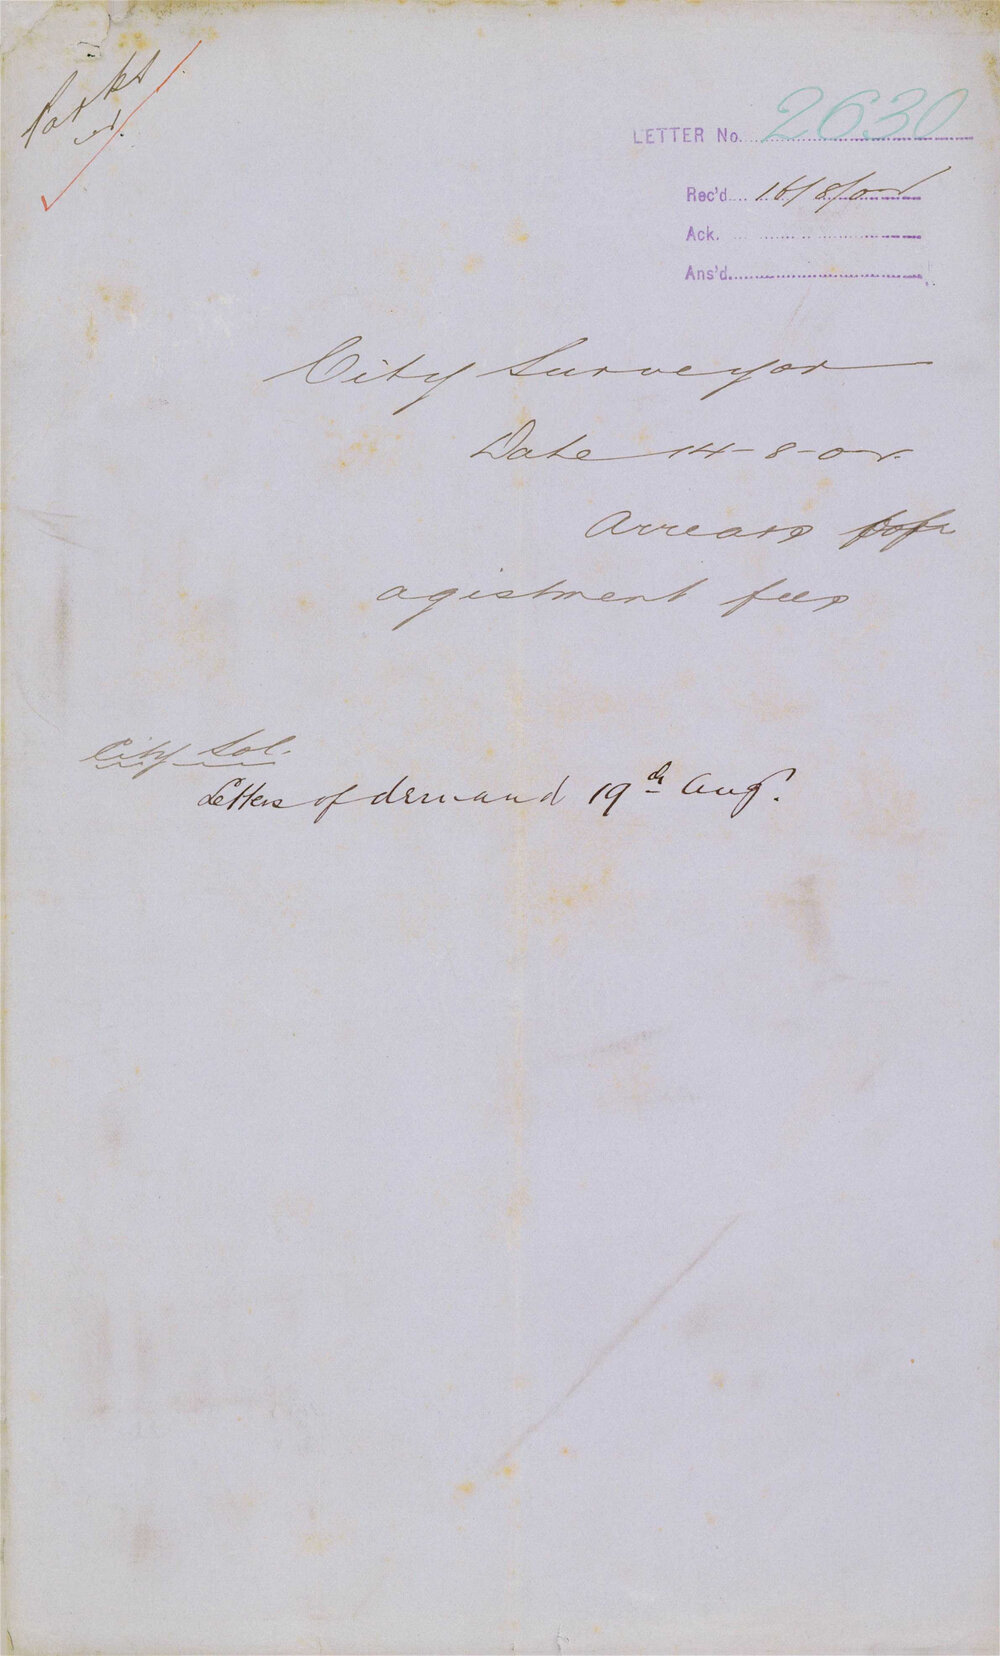 Parks
LETTER No. 2630
Rec'd 16/8/02
Ack.
Ans'd.
City Surveyor
Date 14-8-02.
Arrears
agistment fees
City Sol.
Letters of demand 19th Aug.